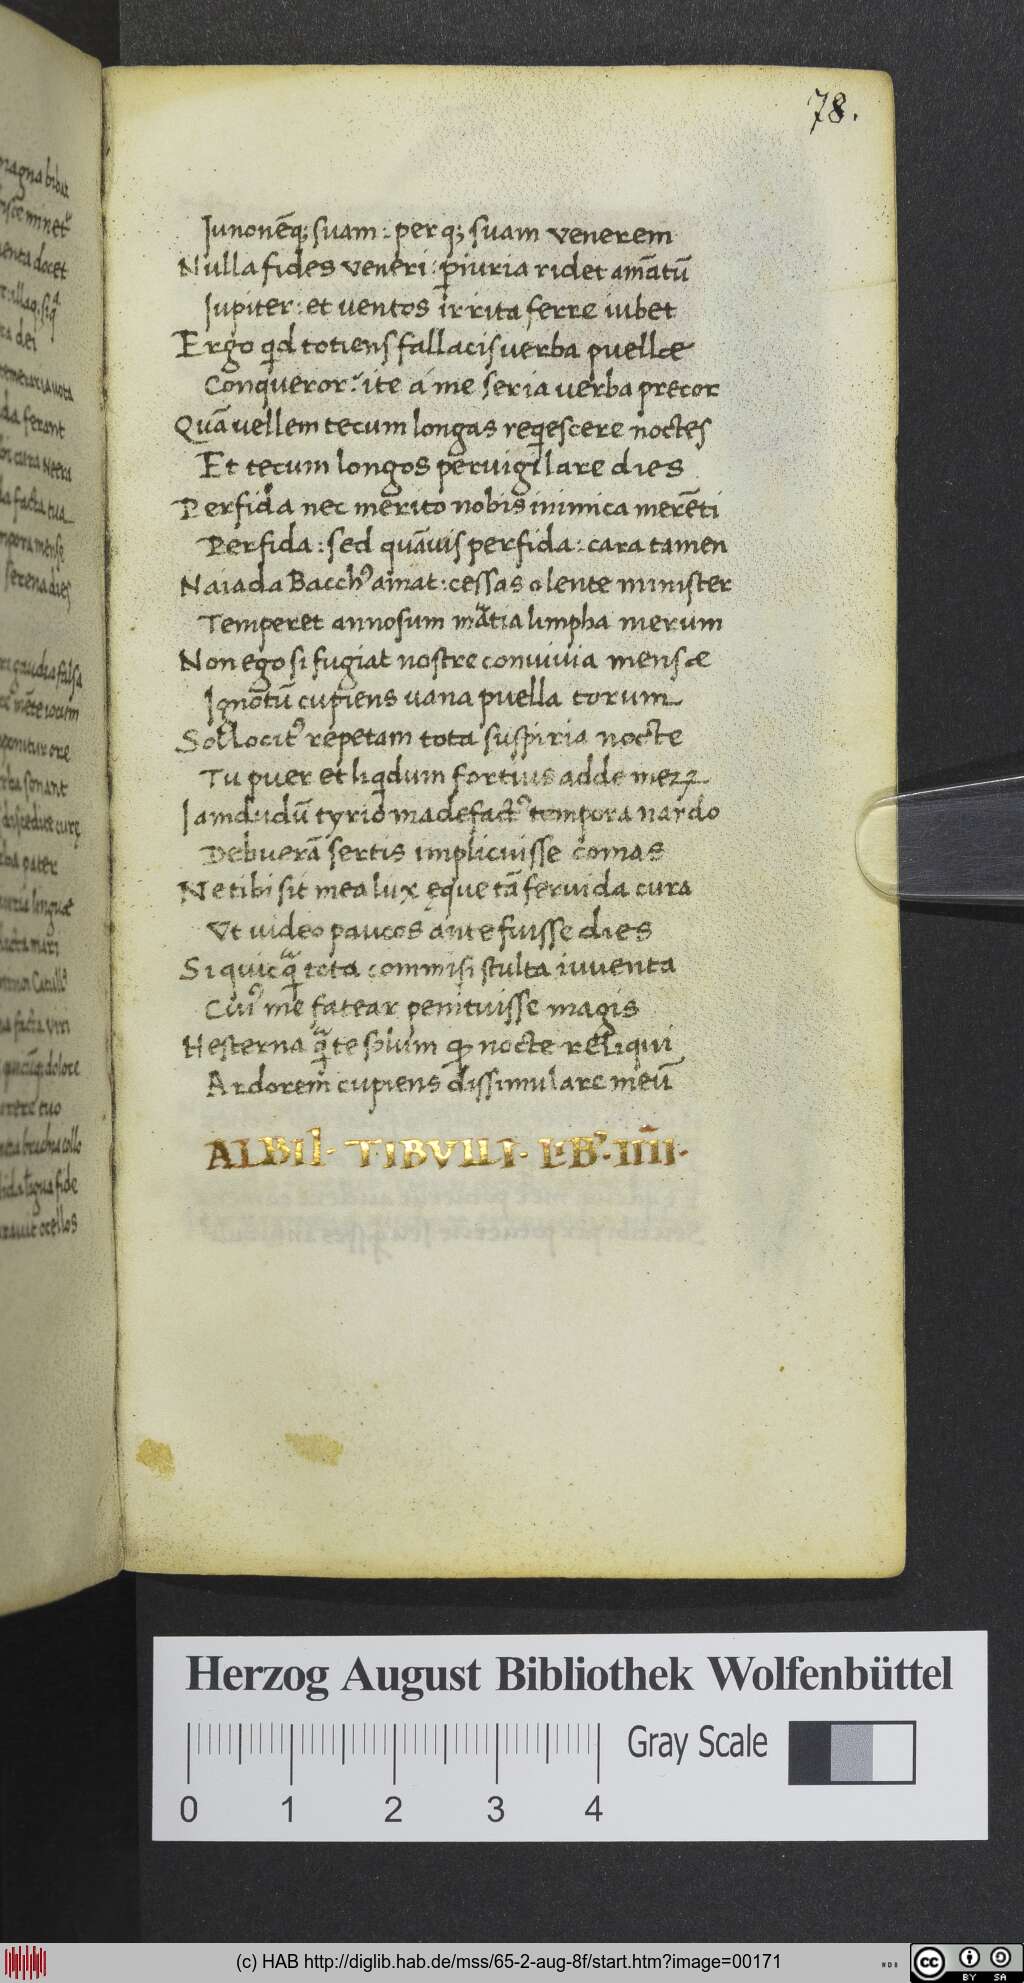 78.
Iunonēq; suam : per q; suam venerem
Nulla fides veneri : ꝑiuria ridet amātū
Iupiter : et ventos irrita ferre iubet
Ergo qͥd totiens fallacis verba puellæ
Conqueror : ite a me seria verba precor
Quā vellem tecum longas reqͥescere noctes
Et tecum longos pervigilare dies
Perfida nec merito nobis inimica merēti
Perfida : sed quāvis perfida : cara tamen
Naiada Bacchꝰ amat : cessas o lente minister
Temperet annosum mᵃtia limpha merum
Non ego si fugiat nostre convivia mensæ
Ignotū cupiens vana puella torum
Sollocitꝰ repetam tota suspiria nocte
Tu puer et liqͥdum fortius adde meꝝ
Iamdudū tyrio madefactꝰ tempora nardo
Debuerā sertis implicuisse comas
Ne tibi sit mea lux ęque tā fervida cura
Ut video paucos ante fuisse dies
Si quicqᵃ tota commisi stulta iuventa
Cuiꝰ me fatear penituisse magis
Hesterna qᵃ te solum qͦ nocte reliqui
Ardorem cupiens dissimulare meū
ALBII · TIBVLLI · LIBꝰ · IIII ·
Herzog August Bibliothek Wolfenbüttel
Gray Scale
0 1 2 3 4
(c) HAB http://diglib.hab.de/mss/65-2-aug-8f/start.htm?image=00171
cc BY SA